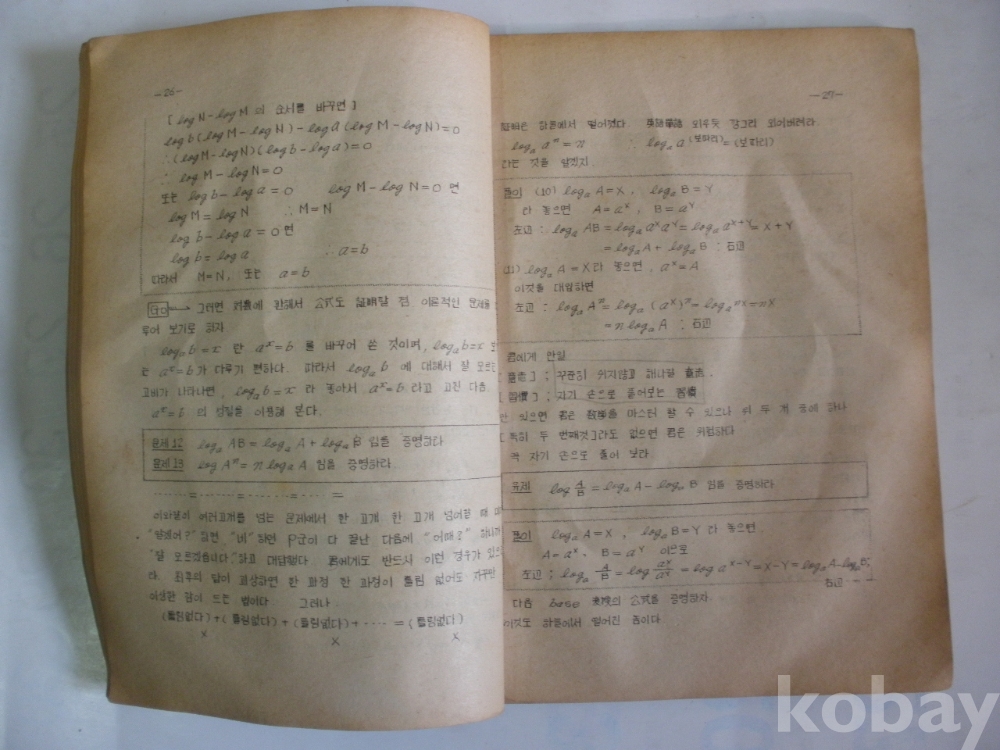 -26-
[ log N - log M 의 요서를 바꾸면 ]
log b (log M - log N) - log a (log M - log N) = 0
∴ (log M - log N)(log b - log a) = 0
∴ log M - log N = 0
또는 log b - log a = 0 log M - log N = 0 면
log M = log N ∴ M = N
log b - log a = 0 면
log b = log a ∴ a = b
따라서 M = N, 또는 a = b
Go → 그러면 에 관해서 公式도 할 겸 이론적인 문제를
루어 보기로 하자
logₐ b = x 란 aˣ = b 를 바꾸어 쓴 것이며, logₐ b = x 보
는 aˣ = b 가 다루기 편하다. 따라서 logₐ b 에 대해서 잘 모르는
고비가 나타나면, logₐ b = x 라 놓아서 aˣ = b 라고 고친 다음
aˣ = b 의 성질을 이용해 본다.
문제 12 logₐ AB = logₐ A + logₐ B 임을 증명하라
문제 13 log Aⁿ = n logₐ A 임을 증명하라.
........ = ........ = ........ = ........ =
이와같이 여러고개를 넘는 문제에서 한 고개 한 고개 넘어갈 때
하면 "네" 하면 P군이 다 끝난 다음에 "어때?"
"잘 모르겠습니다." 하고 대답했다 君에게도 반드시 이런 경우가 있
다. 최후의 답이 괴상하면 한 과정 한 과정이 틀림 없어도 자꾸만
이상한 감이 드는 법이다 그러나
(틀림없다) + (틀림없다) + (틀림없다) + ···· = (틀림없다)
× × ×
-27-
하늘에서 떨어졌다 외우듯 강그리 외어버려라.
logₐ aⁿ = n ∴ logₐ a^(보따리) = (보따리)
라는 것을 알겠지.
풀이 (10) logₐ A = X, logₐ B = Y
라 놓으면 A = aˣ, B = aʸ
左辺 : logₐ AB = logₐ aˣaʸ = logₐ aˣ⁺ʸ = X + Y
= logₐ A + logₐ B : 右辺
(11) logₐ A = X 라 놓으면, aˣ = A
이것을 대입하면
左辺 : logₐ Aⁿ = logₐ (aˣ)ⁿ = logₐ nx = nX
= n logₐ A : 右辺
君에게 만일
] ; 꾸준히 쉬지않고 해나갈 意志.
習慣 ] ; 자기 손으로 풀어보는 習慣
만 있으면 君은 數學을 마스터 할 수 있으나 위 두 개 중에 하나
[ 특히 두 번째것 ] 라도 없으면 君은 위험하다
꼭 자기 손으로 풀어 보라
유제 log A/B = logₐ A - logₐ B 임을 증명하라
풀이 logₐ A = X, logₐ B = Y 라 놓으면.
A = aˣ, B = aʸ 이므로
左辺 ; logₐ A/B = log aˣ/aʸ = log aˣ⁻ʸ = X - Y = logₐ A - logₐ B;
右辺
다음 base 의 公式을 증명하자.
이것도 하늘에서 떨어진 줄이다
kobay